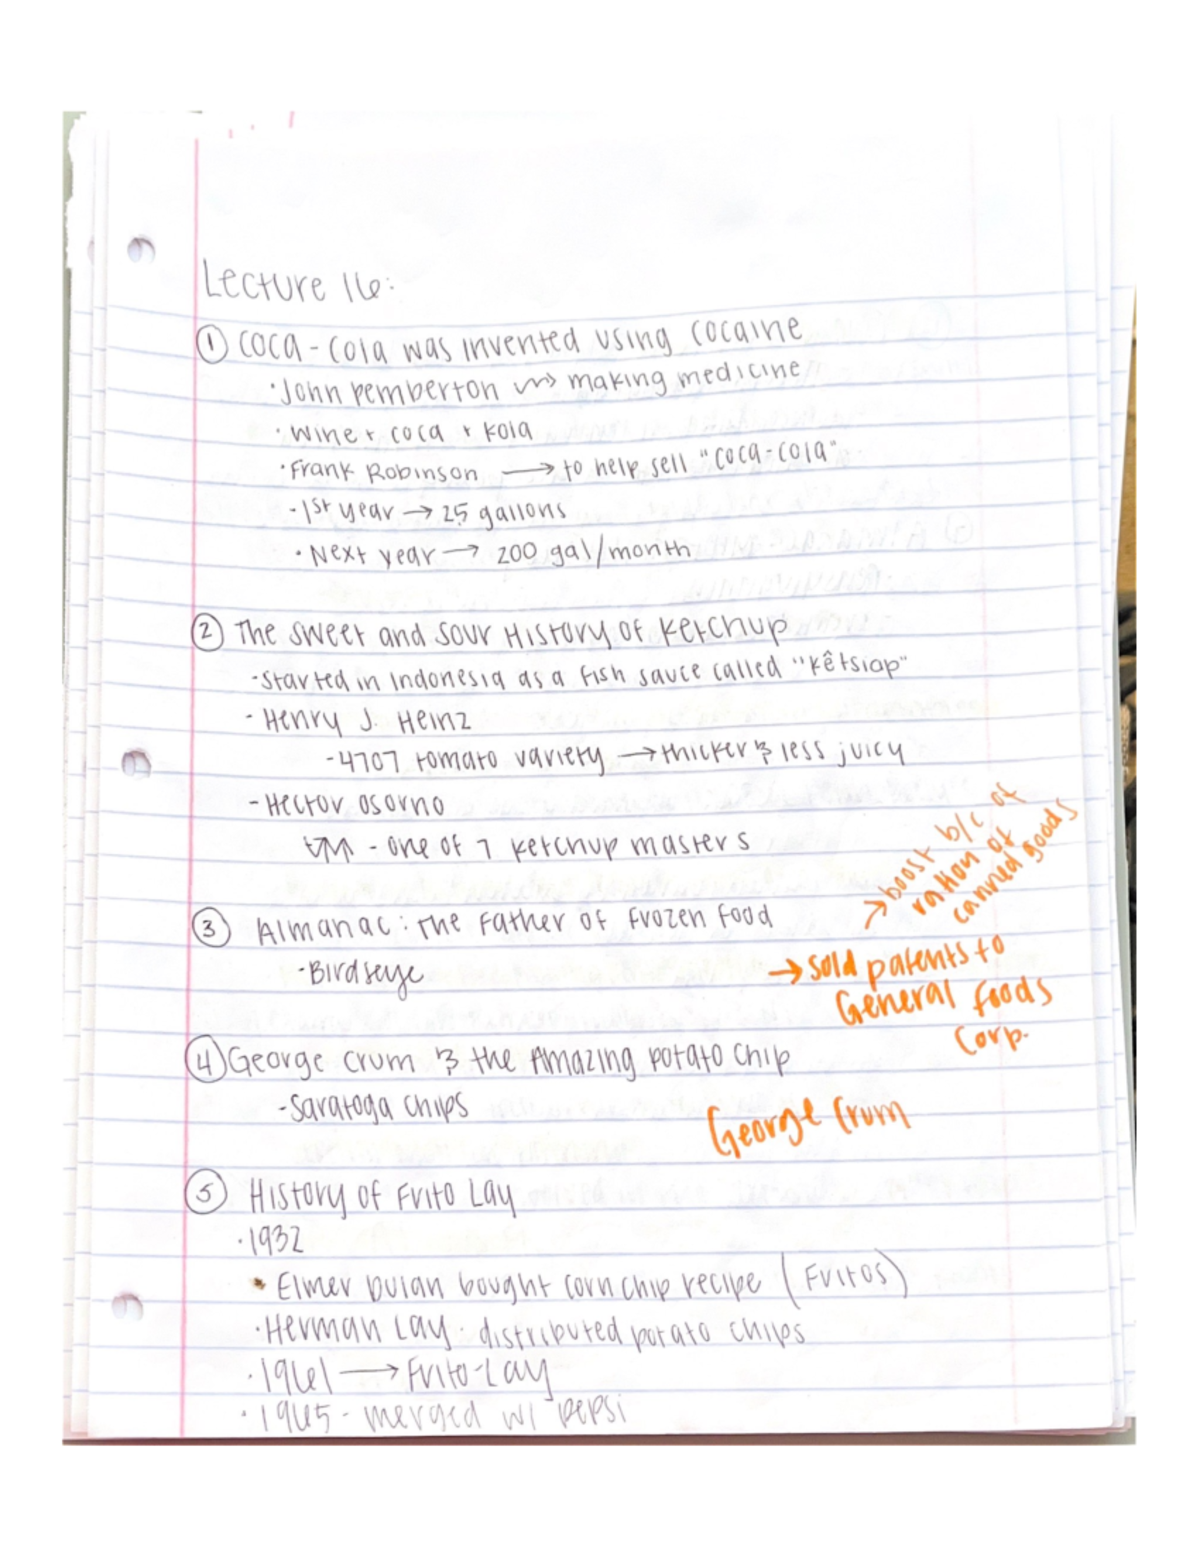 Lecture 16:
① Coca-Cola was invented using cocaine
· John Pemberton ⟿ making medicine
· Wine + coca + kola
· Frank Robinson → to help sell "coca-cola"
· 1st year → 25 gallons
· Next year → 200 gal/month
② The sweet and sour History of Ketchup
- Started in Indonesia as a fish sauce called "kêtsiap"
- Henry J. Heinz
- 4707 tomato variety → thicker & less juicy
- Hector Osorno
- one of 7 ketchup masters
→ boost b/c of
ration of
canned goods
③ Almanac: The Father of Frozen Food
- Birdseye
→ Sold patents to
General foods
Corp.
④ George Crum & the Amazing Potato Chip
- Saratoga Chips
George Crum
⑤ History of Frito Lay
· 1932
· Elmer Dulan bought corn chip recipe (Fritos)
· Herman Lay · distributed potato chips
· 1961 → Frito-Lay
· 1965 - merged w/ pepsi